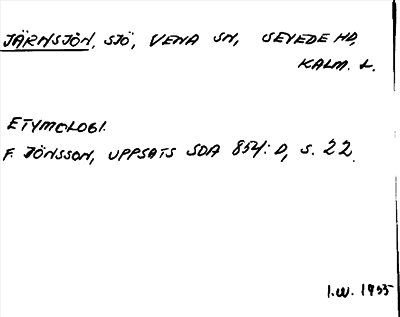 JÄRNSJÖN, SJÖ, VENA SN, SEVEDE HD,
KALM. L.
ETYMOLOGI.
F. JÖNSSON, UPPSATS SOA 854:D, S. 22.
I.W. 1955